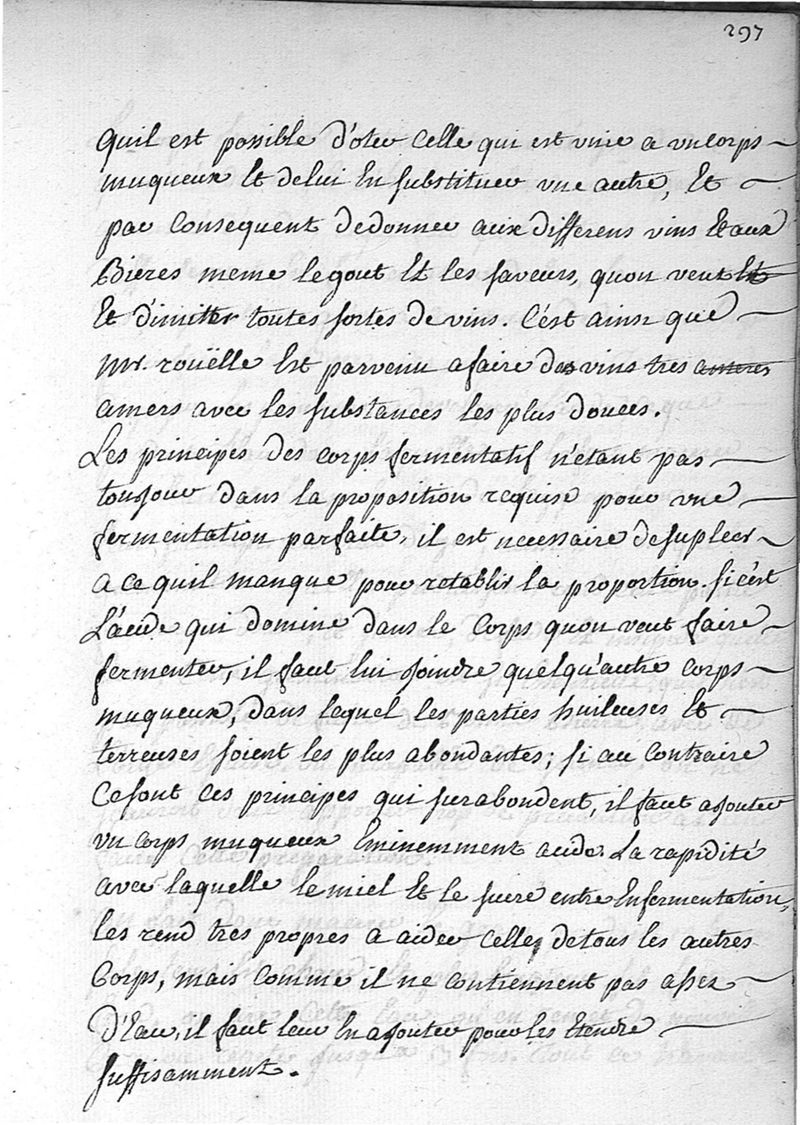 297
quil est possible d'oter celle qui est unie a un corps
muqueux Et delui En substituer une autre, Et
par Consequent dedonner aux differens vins Et aux
Bieres meme legout Et les saveurs, quon veut Et
Et d'imitter toutes sortes de vins. C'est ainsi que
Mr. rouëlle Est parvenu afaire des vins tres austeres
amers avec les substances les plus douces.
Les principes des corps fermentatif n'etant pas
toujour dans la proposition requise pour une
fermentation parfaite, il est necessaire desupleer
a ce quil manque pour retablir la proportion. si c'est
L'acide qui domine dans le Corps quon veut faire
fermenter, il faut lui joindre quelqu'autre corps
muqueux, dans lequel les parties huileuses Et
terreuses soient les plus abondantes; si au Contraire
Ce sont ces principes qui surabondent, il faut ajouter
un corps muqueux Eminemment acide. La rapidité
avec laquelle le miel Et le sucre entre En fermentation,
les rend tres propres a aider celle detous les autres
Corps, mais comme il ne contiennent pas assez
D'Eau, il faut leur En ajouter pour les Etendre
suffisamment.